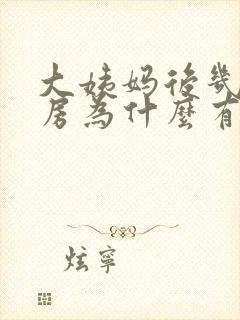 大姨妈後幾
房為什麼有
炫寧